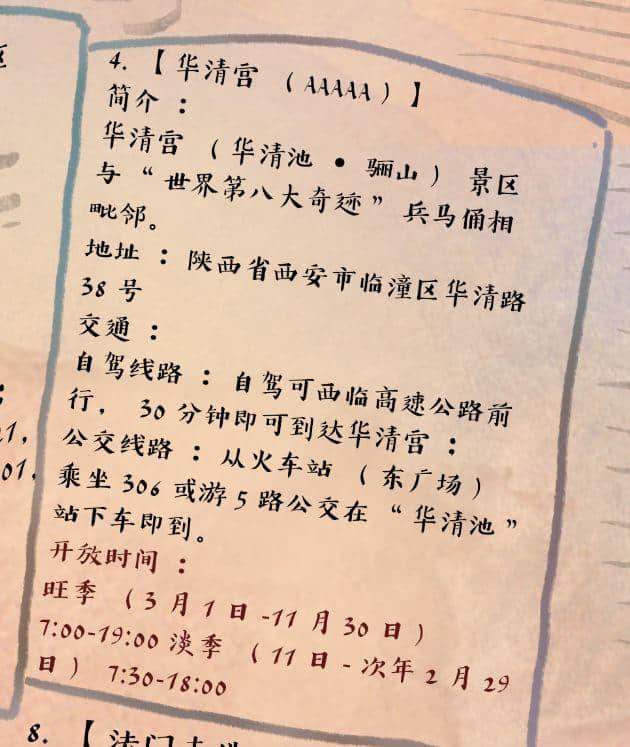 4. 【华清宫 （AAAAA）】
简介 ：
华清宫 （华清池 • 骊山） 景区
与 “世界第八大奇迹” 兵马俑相
毗邻。
地址 ： 陕西省西安市临潼区华清路
38 号
交通 ：
自驾线路 ： 自驾可西临高速公路前
行， 30 分钟即可到达华清宫 ：
公交线路 ： 从火车站 （东广场）
乘坐 306 或游 5 路公交在 “华清池”
站下车即到。
开放时间 ：
旺季 （3 月 1 日 -11 月 30 日）
7:00-19:00 淡季 （11 日 - 次年 2 月 29
日） 7:30-18:00
8. 【